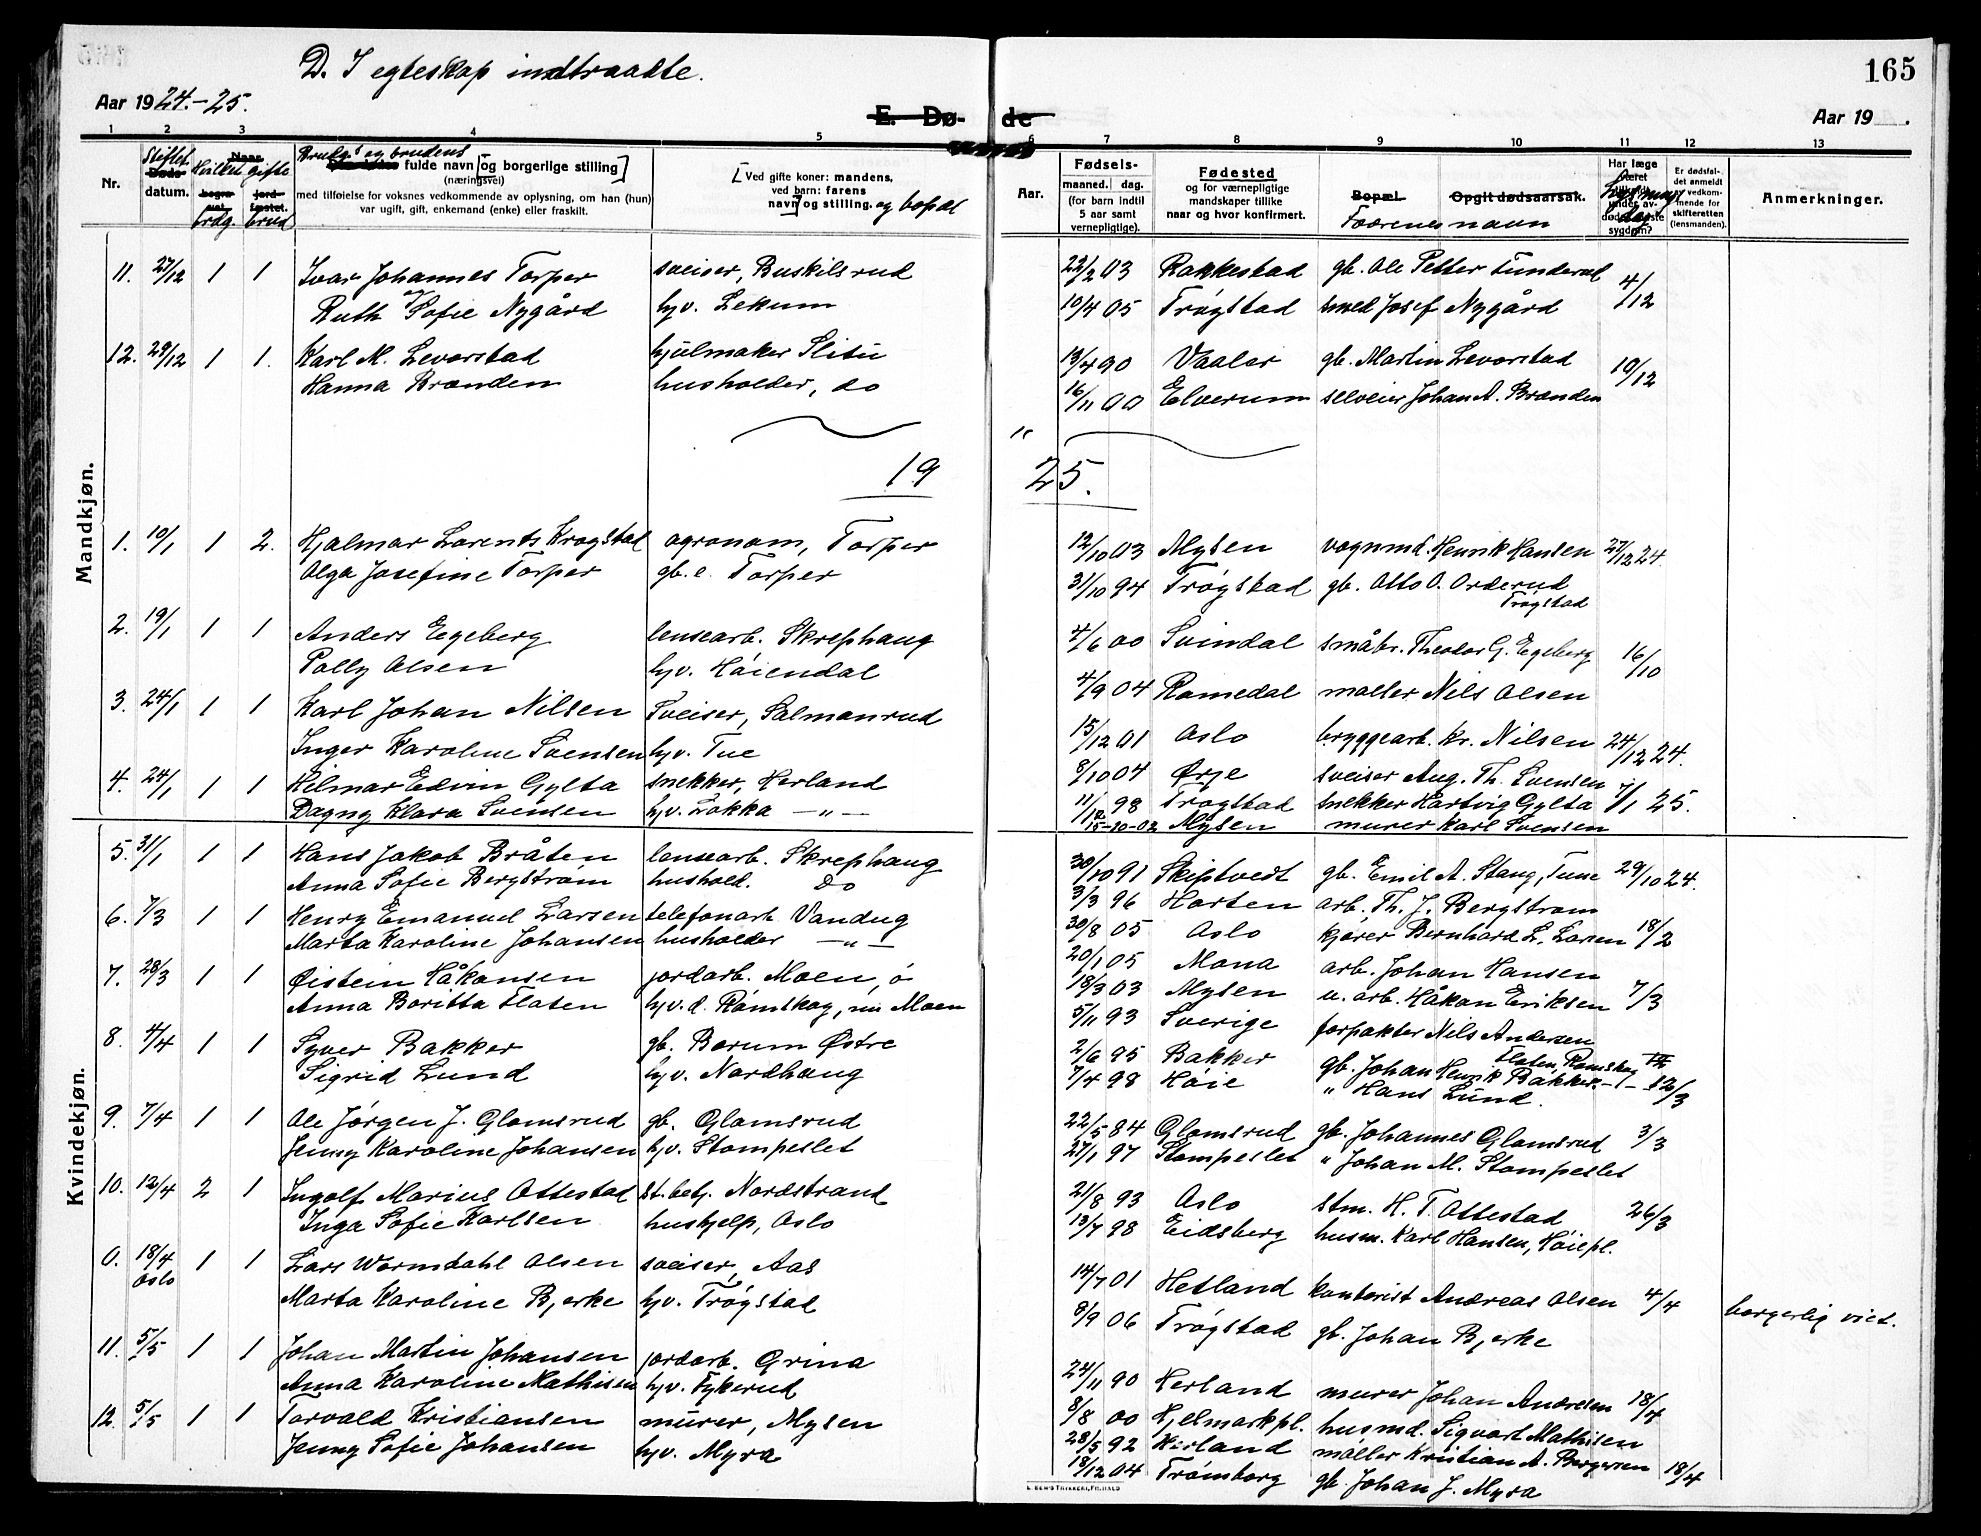 D. I egteskap indtraadte.
165
Aar 1924.-25.
E. Dø- de
Aar 19 .
1 2 3 4 5 6 7 8 9 10 11 12 13
Nr.
Stiftet
datum.
Hvilket gifte
brdg. brud
Brudg.s og brudens fulde navn og borgerlige stilling
(næringsvei)
med tilføielse for voksnes vedkommende av oplysning, om han (hun)
var ugift, gift, enkemand (enke) eller fraskilt.
Ved gifte koner: mandens,
ved barn: farens
navn og stilling. og bopæl
Aar.
Fødsels-
maaned. dag.
(for barn indtil
5 aar samt
vernepligtige).
Fødested
og for værnepligtige
mandskaper tillike
naar og hvor konfirmert.
Bopæl. Opgit dødsaarsak.
Fædrenes navn
Har læge
været
sygdom?
Er dødsfal-
det anmeldt
vedkom-
mende for
skifteretten
(lensmanden).
Anmerkninger.
Mandkjøn.
11. 27/12 1 1 Ivar Johannes Torper sveiser, Buskilsrud 22/2 03 Rakkestad gb. Ole Petter Tunderud 4/12
Ruth Sofie Nygård hv. Lekum 10/4 05 Trøgstad smed Josef Nygård
12. 29/12 1 1. Karl M. Levorstad hjulmaker Slitu 13/4 90 Vaaler gb. Martin Levorstad 19/12
Hanna Brænden husholder, do 16/11 00 Elverum selveier Johan A. Brænden
19 25.
1. 10/1 1 2. Hjalmar Lorents Krogstad agronom, Torper 12/10 03 Mysen vognmd. Henrik Hansen 27/12 24.
Olga Josefine Torper gb. e. Torper 31/10 94 Trøgstad gb. Otto O. Orderud
Trøgstad
2. 19/1 1 1 Anders Egeberg lensearb. Skrephaug 4/6 00 Svindal småbr. Theodor G. Egeberg 16/10
Polly Olsen hv. Høiendal 4/9 04 Romedal møller Nils Olsen
3. 24/1 1 1 Karl Johan Nilsen Sveiser, Salmonrud 15/12 01 Oslo bryggearb. Kr. Nilsen 24/12 24.
Inger Karoline Svensen hv. Tue 8/10 04 Ørje sveiser Aug. Th. Svensen
4. 24/1 1 1 Hilmar Edvin Gylta snekker, Herland 11/12 98 Trøgstad snekker Hartvig Gylta 7/1 25.
Dagny Klara Svensen hv. Løkka —"— 15-10-02 Mysen murer Karl Svensen
Kvindekjøn.
5. 31/1 1 1 Hans Jakob Bråten lensearb. Skrephaug 30/10 91 Skiptvedt gb. Emil A. Stang, Tune 29/10 24.
Anna Sofie Bergstrøm hushold. do 3/3 96 Horten arb. Th. J. Bergstrøm
6. 7/3 1 1 Henry Emanuel Larsen telefonarb Vandug 30/8 05 Oslo kjører Bernhard L. Larsen 18/2
Marta Karoline Johansen husholder —"— 20/1 05 Mona arb. Johan Hansen
7. 28/3 1 1 Øistein Håkansen jordarb. Moen, ø 18/3 03 Mysen u. arb. Håkan Eriksen 7/3
Anna Boritta Flaten hv. d. Rømskog, nu Moen 5/11 93 Sverige forpakter Nils Andersen
Flaten Rømskog
8. 4/4 1 1 Syver Bakker gb. Borum Østre 2/6 95 Bakker gb. Johan Henrik Bakker 12/3
Sigrid Lund hv. Nordhaug 7/4 98 Høie " Hans Lund.
9. 7/4 1 1 Ole Jørgen J. Glomsrud gb. Glomsrud 22/5 84 Glomsrud gb. Johannes Glomsrud 3/3
Jenny Karoline Johansen hv. Stompeslet 27/1 97 Stompeslet " Johan M. Stompeslet
10. 12/4 2 1 Ingolf Marius Ottestad st. betj. Nordstrand 21/8 93 Oslo stm. H. T. Ottestad 26/3
Inga Sofie Karlsen hushjelp, Oslo 13/7 98 Eidsberg husm. Karl Hansen, Høiepl.
0. 18/4 1 1 Lars Wormdahl Olsen sveiser, Aas 14/7 01 Hetland kontorist Andreas Olsen 4/4 borgerlig viet.
Oslo
Marta Karoline Bjerke hv. Trøgstad 8/9 06 Trøgstad gb. Johan Bjerke
11. 5/5 1 1 Johan Martin Johansen jordarb. Grina 24/11 90 Herland murer Johan Andresen 18/4
Anna Karoline Mathisen hv. Fykerud 8/8 00 Hjelmarkpl. husmd. Sigvart Mathisen
12. 5/5 1 1 Torvald Kristiansen murer, Mysen 28/5 92 Herland møller Kristian A. Bergersen 18/4
Jenny Sofie Johansen hv. Myra 18/12 04 Trømborg gb. Johan J. Myra